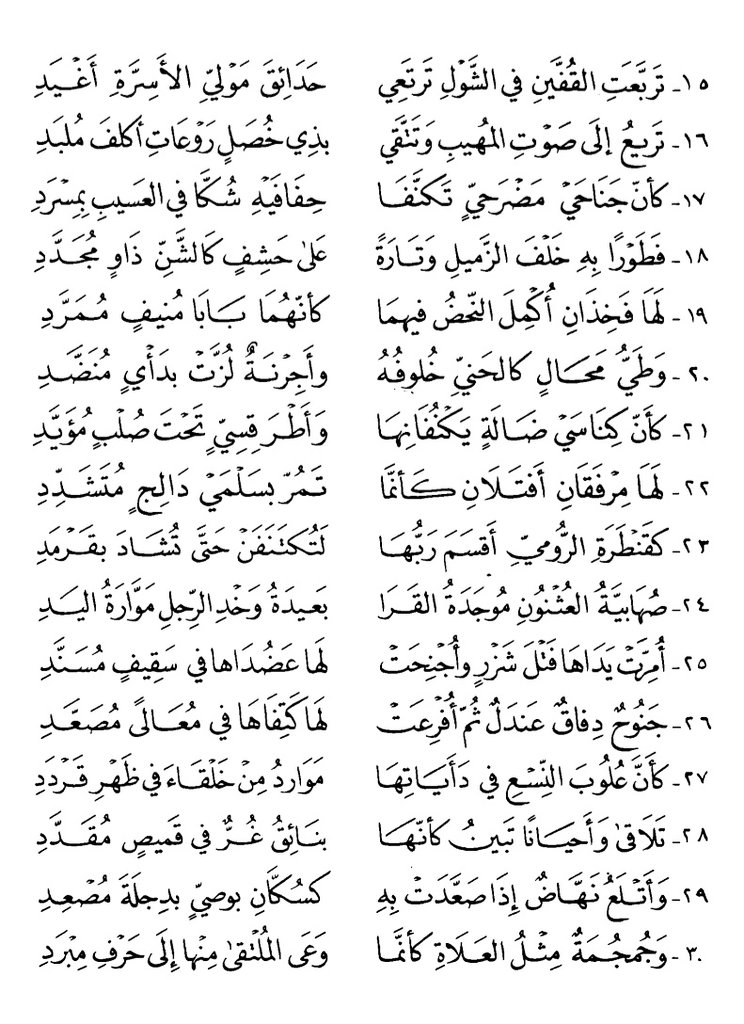 ١٥ـ تَرَبَّعَتِ القُفَّينِ في الشَّوْلِ تَرتَعِي حَدَائِقَ مَوْليِّ الأَسِرَّةِ أَغْيَدِ
١٦ـ تَرِيعُ إلَى صَوْتِ المُهيبِ وَتَتَّقي بذِي خُصَلٍ رَوْعَاتِ أكلفَ مُلبَدِ
١٧ـ كأنّ جَنَاحَيْ مَضْرَحيٍّ تَكَنَّفَا حِفَافَيْهِ شُكَّا في العَسيبِ بِمِسْرَدِ
١٨ـ فَطَوْرًا بِهِ خَلْفَ الزَّميلِ وَتَارَةً عَلىٰ حَشِفٍ كَالشَّنِّ ذَاوٍ مُجَدَّدِ
١٩ـ لَهَا فَخِذَانِ أُكْمِلَ النّحْضُ فيهِمَا كأنّهُمَا بَابَا مُنيفٍ مُمَرَّدِ
٢٠ـ وَطَيُّ مَحَالٍ كالحَنيِّ خُلوفُهُ وأَجرِنَةٌ لُزَّتْ بدَأْيٍ مُنَضَّدِ
٢١ـ كأَنّ كِنَاسَيْ ضَالَةٍ يَكْنُفَانِهَا وَأَطْرَ قِسِيٍّ تَحْتَ صُلْبٍ مُؤَيَّدِ
٢٢ـ لَهَا مِرْفَقَانِ أَفتَلَانِ كَأنَّمَا تَمُرّ بسَلْمَيْ دَالِجٍ مُتَشَدِّدِ
٢٣ـ كقَنْطَرَةِ الرُّوميِّ أَقسَمَ رَبُّهَا لَتُكتَنَفَنْ حَتَّى تُشَادَ بقَرْمَدِ
٢٤ـ صُهَابيَّةُ العُثْنُونِ مُوجَدَةُ القَرَا بَعيدَةُ وَخْدِ الرِّجلِ مَوَّارَةُ اليَدِ
٢٥ـ أُمِرَّتْ يَدَاهَا فَتْلَ شَزْرٍ وأُجْنِحَتْ لهَا عَضُدَاها في سَقِيفٍ مُسَنَّدِ
٢٦ـ جَنُوحٌ دِفاقٌ عَندَلٌ ثُمّ أُفْرِعَتْ لهَا كَتِفَاهَا في مُعَالىً مُصَعَّدِ
٢٧ـ كَأَنَّ عُلُوبَ النِّسْعِ في دَأَيَاتِهَا مَوَاردُ مِنْ خَلْقَاءَ في ظَهْرِ قَرْدَدِ
٢٨ـ تَلَاقىٰ وَأَحيَانًا تَبينُ كأنّهَا بنَائِقُ غُرٌّ في قَميصٍ مُقَدَّدِ
٢٩ـ وَأَتْلَعُ نَهَّاضٌ إِذَا صَعَّدَتْ بِهِ كسُكَّانِ بوصيٍّ بدِجلَةَ مُصْعِدِ
٣٠ـ وَجُمجُمَةٌ مِثْلُ العَلَاةِ كأنَّمَا وَعَى المُلْتَقىٰ مِنْها إلَى حَرْفِ مِبْرَدِ